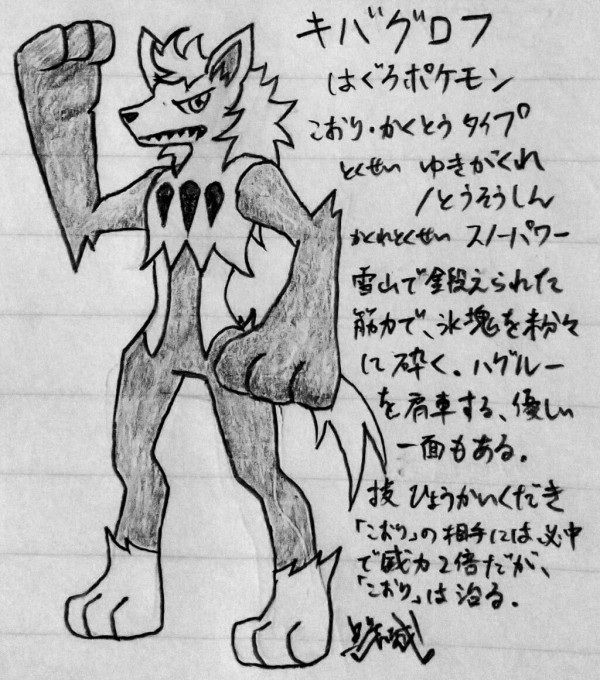 キバグロフ
はぐろポケモン
こおり・かくとうタイプ
とくせい ゆきがくれ
/とうそうしん
かくれとくせい スノーパワー
雪山で鍛えられた
筋力で、氷塊を粉々
に砕く。ハグルー
を肩車する、優しい
一面もある。
技 ひょうかいくだき
「こおり」の相手には、必中
で威力2倍だが、
「こおり」は治る。